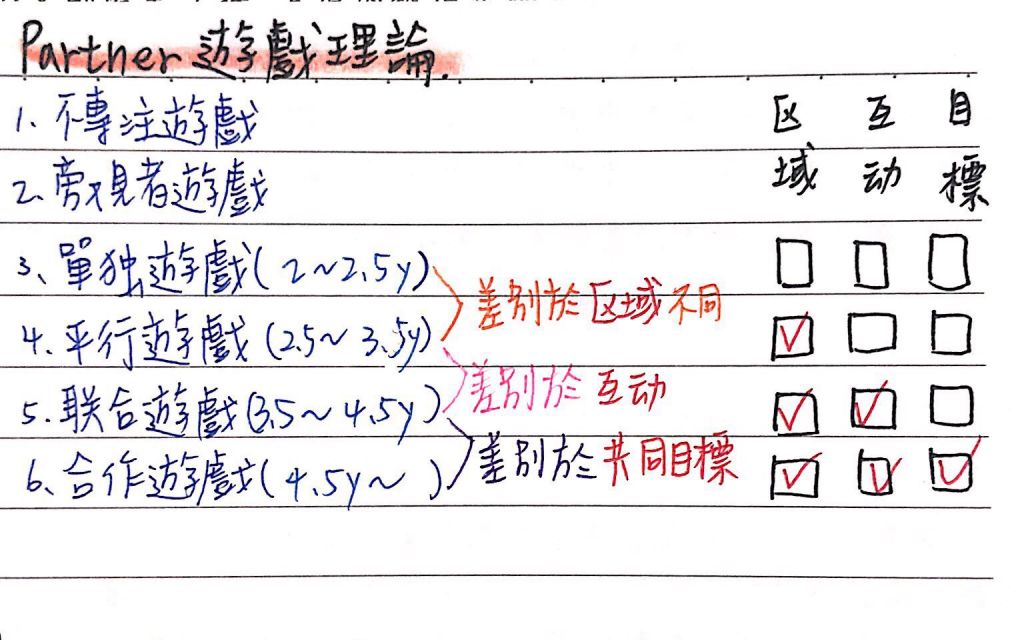 Partner 遊戲理論.
1、不專注遊戲 区 互 目
2、旁观者遊戲 域 动 標
3、單独遊戲(2~2.5y)
差别於区域不同
4.平行遊戲(2.5~3.5y)
差别於互动
5.联合遊戲(3.5~4.5y)
差别於共同目標
6、合作遊戲(4.5y~ )